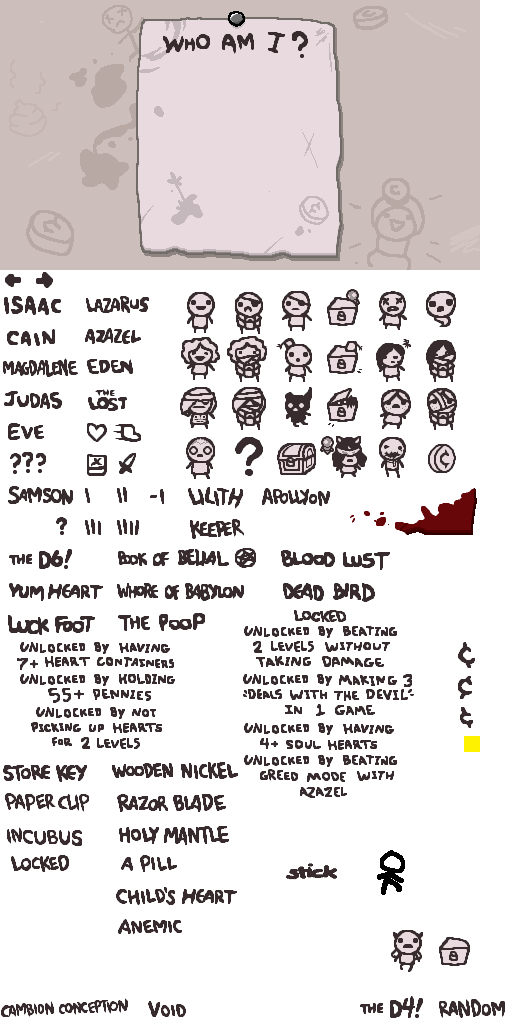 WHO AM I?
ISAAC LAZARUS
CAIN AZAZEL
MAGDALENE EDEN
JUDAS THE LOST
EVE
???
?
SAMSON I II -I LILITH APOLLYON
? III IIII KEEPER
THE D6! BOOK OF BELIAL BLOOD LUST
YUM HEART WHORE OF BABYLON DEAD BIRD
LUCK FOOT THE POOP
LOCKED
UNLOCKED BY BEATING
2 LEVELS WITHOUT
TAKING DAMAGE
UNLOCKED BY HAVING
7+ HEART CONTAINERS
UNLOCKED BY HOLDING
55+ PENNIES
UNLOCKED BY NOT
PICKING UP HEARTS
FOR 2 LEVELS
UNLOCKED BY MAKING 3
"DEALS WITH THE DEVIL"
IN 1 GAME
UNLOCKED BY HAVING
4+ SOUL HEARTS
UNLOCKED BY BEATING
GREED MODE WITH
AZAZEL
¢
¢
¢
STORE KEY WOODEN NICKEL
PAPER CLIP RAZOR BLADE
INCUBUS HOLY MANTLE
LOCKED A PILL
stick
CHILD'S HEART
ANEMIC
CAMBION CONCEPTION VOID THE D4! RANDOM